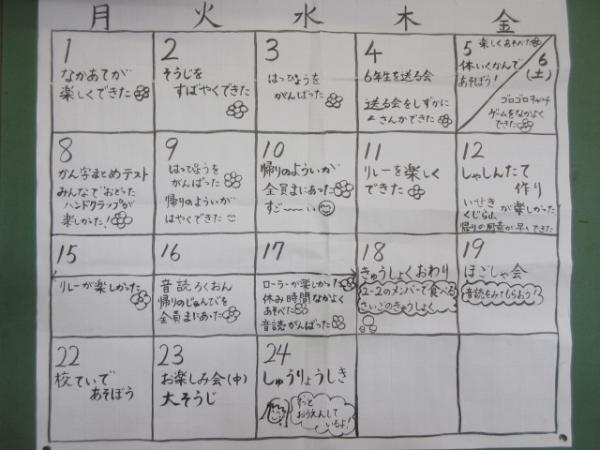 月 火 水 木 金
1
なかあてが
楽しくできた
2
そうじを
すばやくできた
3
はっぴょうを
がんばった
4
6年生を送る会
送る会をしずかに
さんかできた
5
体いくかんで
あそぼう!
6
(土)
ゴロゴロ
ゲームをなかよく
できた
8
かん字まとめテスト
みんなでおどった
ハンドクラップが
楽しかった!
9
はっぴょうを
がんばった
帰りのよういが
はやくできた
10
帰りのよういが
全員まにあった
すご〜〜い
11
リレーを楽しく
できた
12
しゃしんたて
作り
いせき
くじらぶ
が楽しかった
帰りの用意が早くできた
15
リレーが楽しかった
16
音読ろくおん
帰りのじゅんびを
全員まにあった
17
ローラーが楽しかった!
休み時間なかよく
あそべた
音読がんばった
18
きゅうしょくおわり
2-2のメンバーで食べる
さいごのきゅうしょく
19
ほごしゃ会
音読をみてもらおう!
22
校ていで
あそぼう
23
お楽しみ会(中)
大そうじ
24
しゅうりょうしき
ずっと
おうえんして
いるよ!